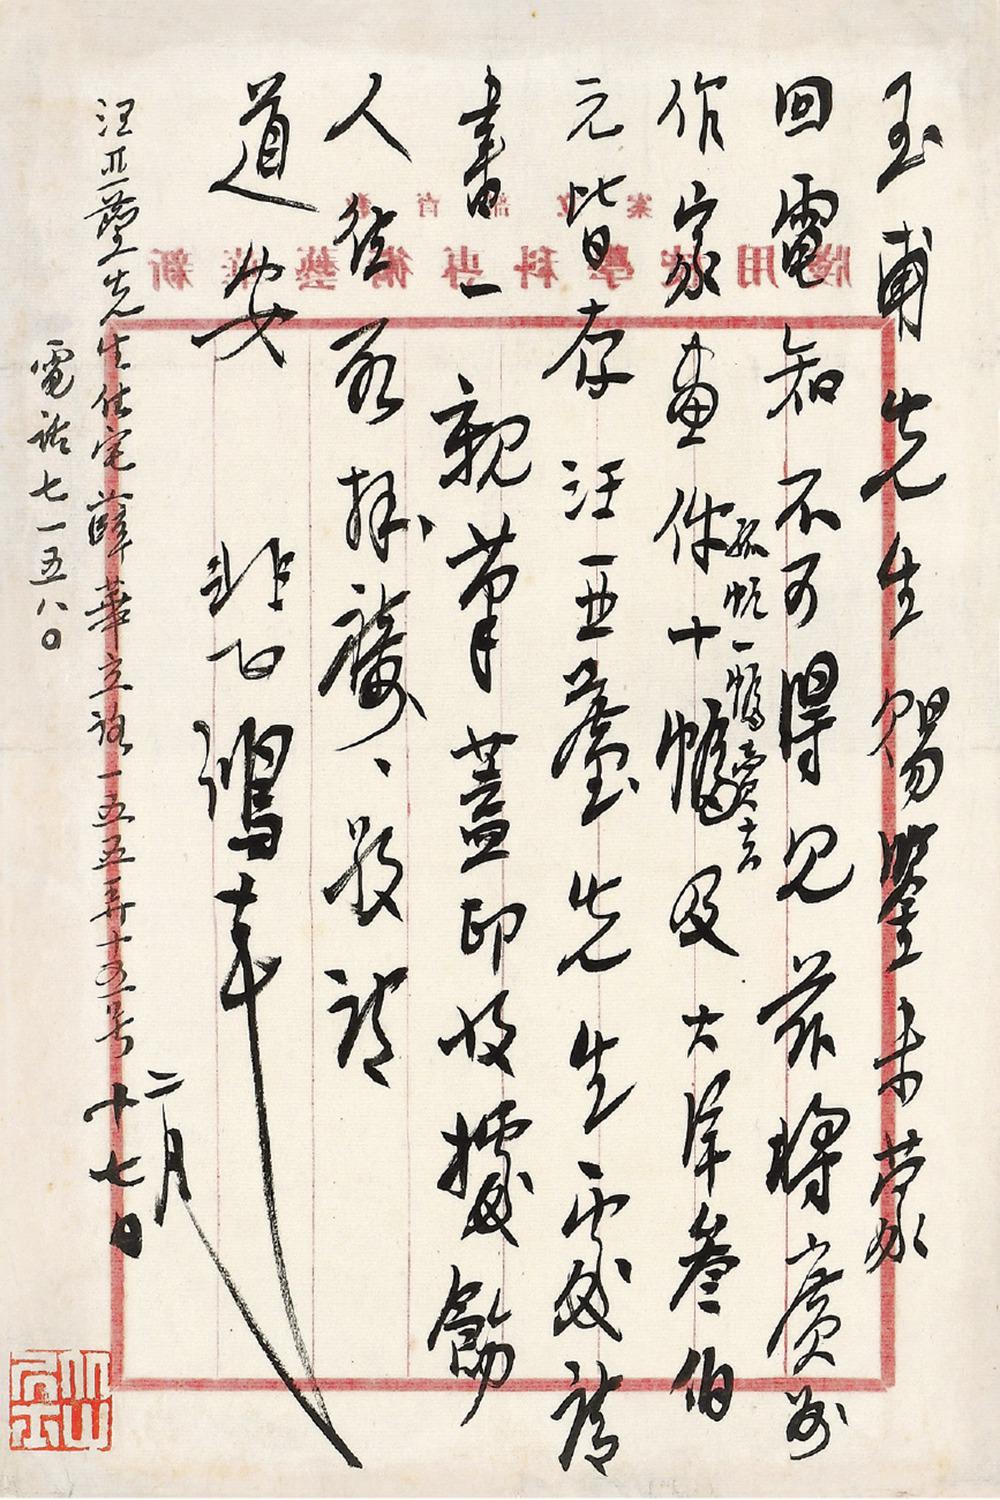 玉甫先生賜鑒未蒙
回電知不可得見茲將廣州
作家畫件十幅及大洋叁伯
孤帆一幅賣去
元皆存汪亞塵先生處請
書一親筆蓋印收據飭
人往取拜禱、敬請
道安
悲鴻
二月
十七日
汪亞塵先生住宅薛華立路一五五弄十五号
電話七一五八〇
案立部育教
牋用校學科專術藝華新